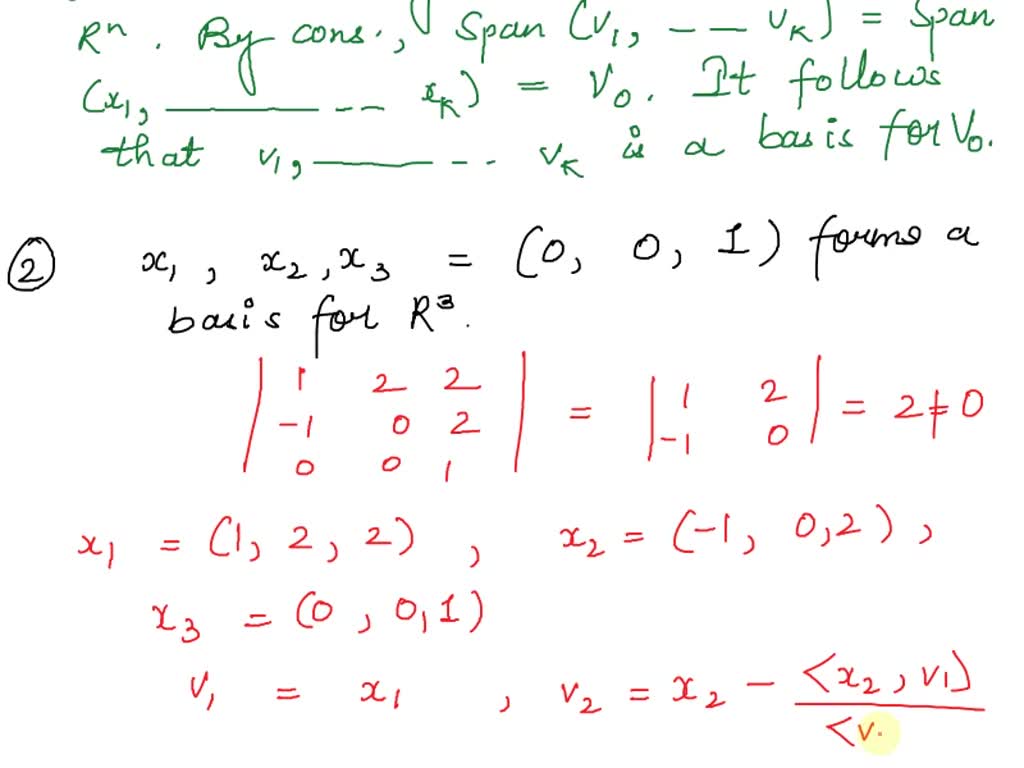 Rⁿ. By cons., Span (v₁, -- vₖ) = Span
(x₁, ---- xₖ) = V₀. It follows
that v₁, ---- vₖ is a basis for V₀.
② x₁, x₂, x₃ = (0, 0, 1) forms a
basis for R³.
| 1 2 2 | | 1 2 |
| -1 0 2 | = | -1 0 | = 2 ≠ 0
| 0 0 1 |
x₁ = (1, 2, 2), x₂ = (-1, 0, 2),
x₃ = (0, 0, 1)
v₁ = x₁, v₂ = x₂ - <x₂, v₁>
<v.